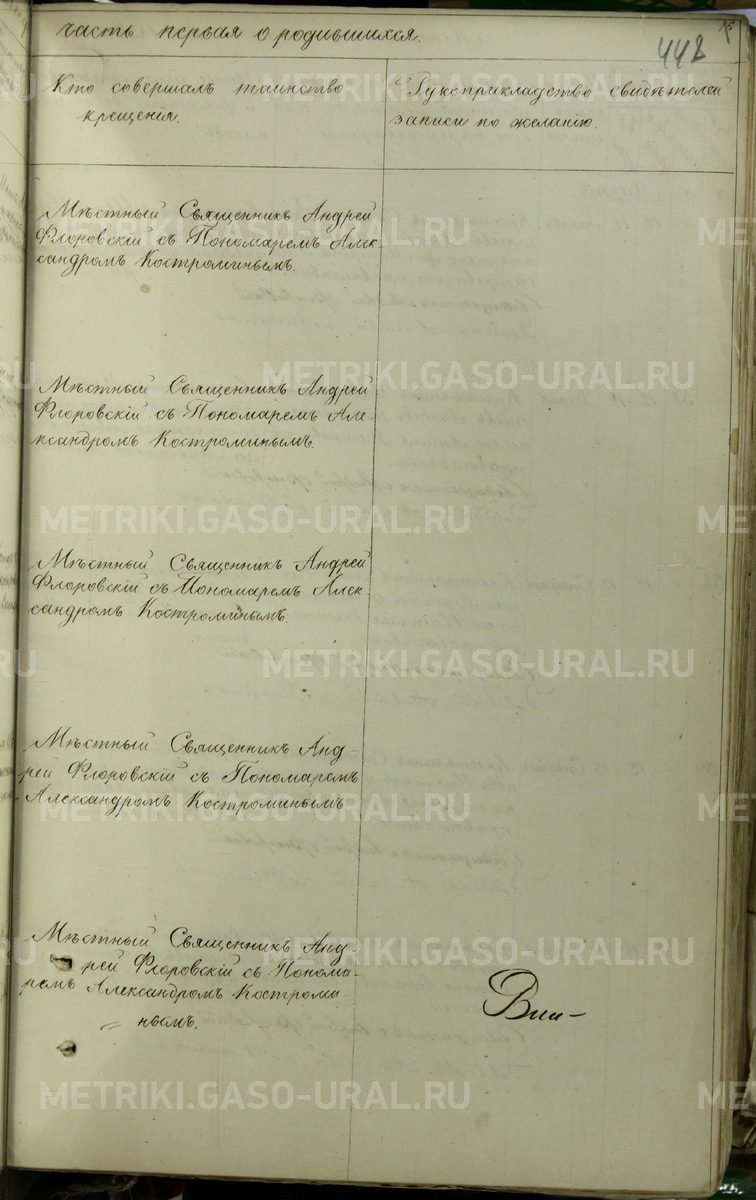 часть первая о родившихся.
448
Кто совершалъ таинство
крещенія.
Рукоприкладство свидѣтелей
записи по желанію.
Мѣстный Священникъ Андрей
Флоровскій съ Пономаремъ Алек-
сандромъ Костроминымъ.
Мѣстный Священникъ Андрей
Флоровскій съ Пономаремъ Але-
ксандромъ Костроминымъ.
Мѣстный Священникъ Андрей
Флоровскій съ Пономаремъ Алек-
сандромъ Костроминымъ
Мѣстный Священникъ Анд-
рей Флоровскій съ Пономаремъ
Александромъ Костроминымъ
Мѣстный Священникъ Анд-
рей Флоровскій съ Понома-
ремъ Александромъ Костроми
нымъ.
METRIKI.GASO-URAL.RU